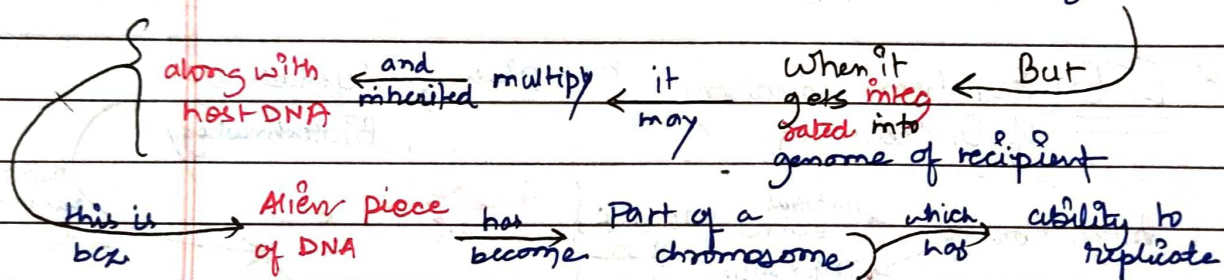 But
When it gets integ
rated into
genome of recipient
it may
multiply
and inherited
along with
host DNA
this is bcz
Alien piece
of DNA
has become
Part of a
chromosome
which has
ability to
replicate